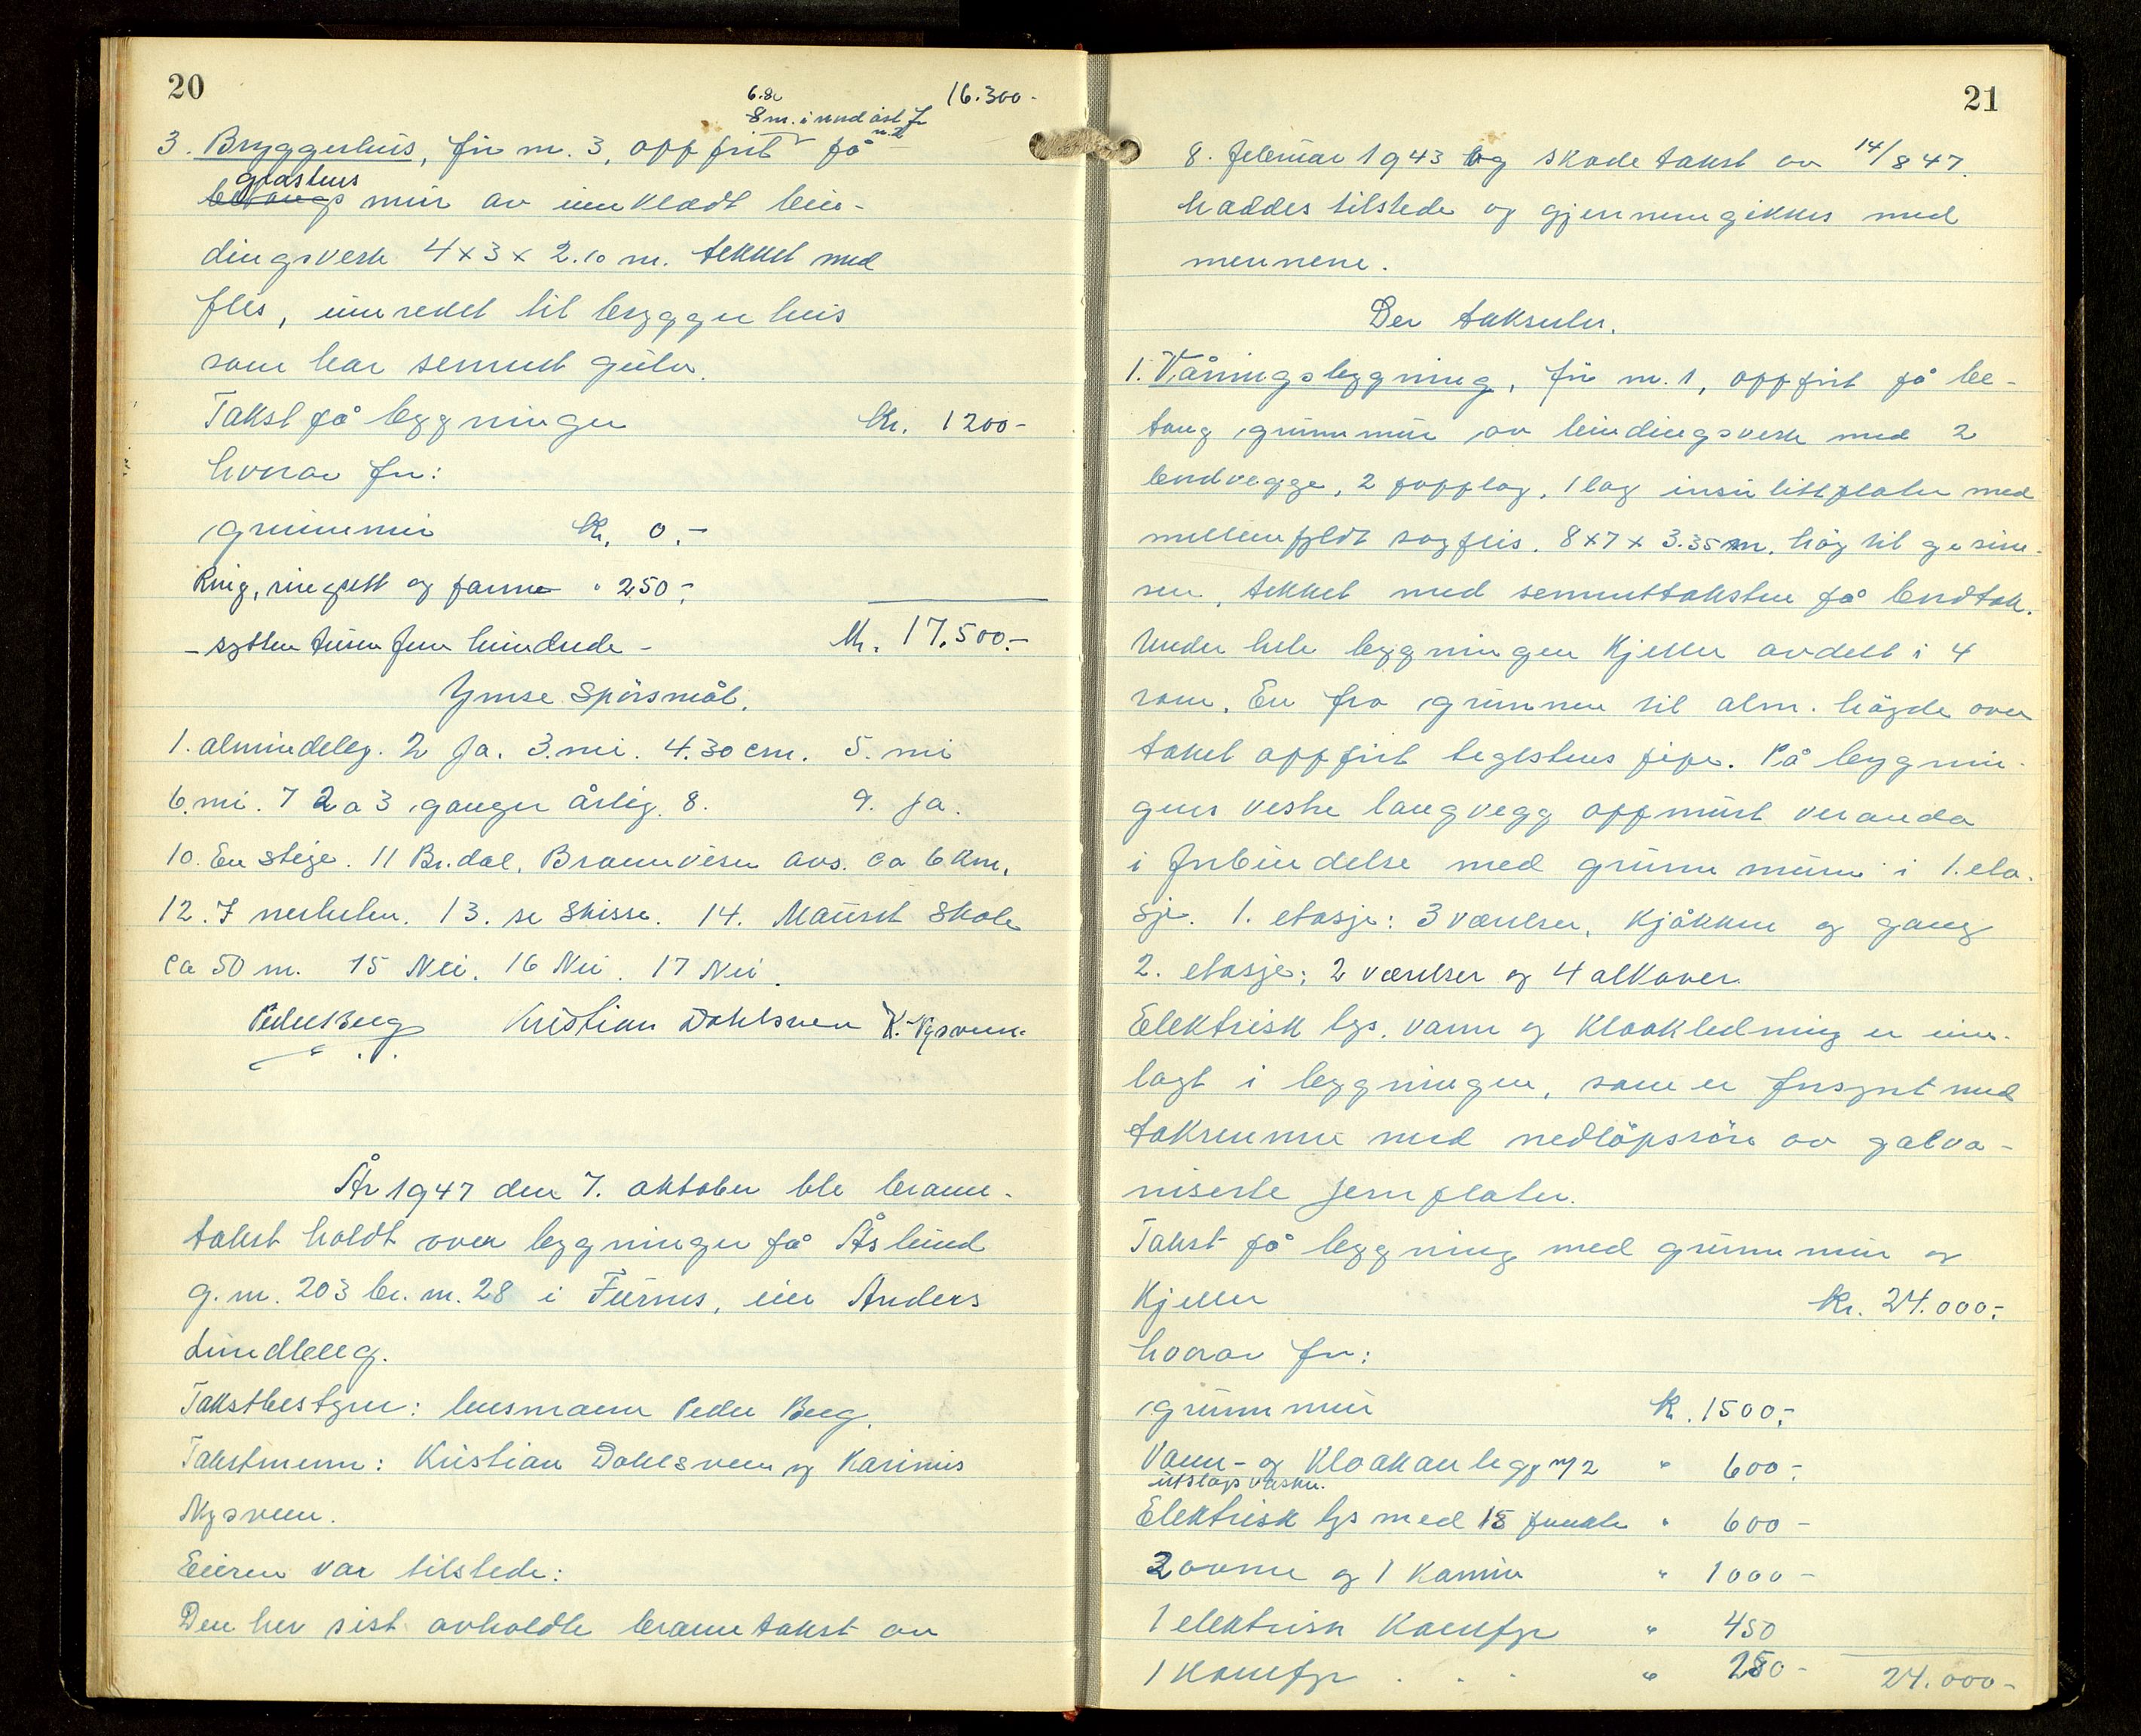 20
16.300-
6.80
8 m. i nordöst f
3. Bryggerhus, för nr. 3, oppfört på
gråstens
betongs mur av innkledt bin-
dingsverk 4 x 3 x 2.10 m. tekket med
flis, innredet til bryggerhus
som har sement gulv.
Takst på bygningen Kr. 1200-
hvorav for:
grunnmur Kr. 0.-
Ring, ringsett og panne " 250.-
- sytten tusen fem hundrede - Kr. 17.500.-
Ymse Spörsmål.
1. almindelig. 2 Ja. 3. nei. 4. 30 cm. 5. nei
6. nei. 7 2 a 3 ganger årlig. 8. 9. Ja.
10. En stige. 11 Br.dal, Brannvesen avs. ca 6 km.
12. I nerheten. 13. se Skisse. 14. Maurst Skole
ca 50 m. 15 Nei. 16 Nei. 17 Nei.
Peder Berg Kristian Dahlsveen K. Nysveen.
År 1947 den 7. oktober ble brann-
takst holdt over bygninger på Åslund
g.nr. 203 br.nr. 28 i Furnes, eier Anders
Lundberg.
Takstbestyrer: lensmann Peder Berg.
Takstmenn: Kristian Dahlsveen og Karinius
Nysveen.
Eieren var tilstede:
Den her sist avholdte branntakst av
21
8. februar 1943 og skadetakst av 14/8 47.
haddes tilstede og gjennemgikkes med
mennene.
Der takseres.
1. Våningsbygning, för nr. 1, oppfört på be-
tong grunnmur av bindingsverk med 2
bordvegge, 2 papplag, 1 lag insulittplater med
mellemfyldt sagflis. 8 x 7 x 3.35 m. hög til gesim-
sen, tekket med sementtaksten på bordtak.
Under hele bygningen Kjeller avdelt i 4
rom. En fra grunnen til alm. högde over
taket oppfört teglstens pipe. På bygnin-
gens vestre langvegg oppmurt veranda
i forbindelse med grunnmuren i 1. eta-
sje. 1. etasje: 3 værelser, Kjökken og gang
2. etasje: 2 værelser og 4 alkover.
Elektrisk lys, vann og Kloakledning er inn-
lagt i bygningen, som er forsynt med
takrenner med nedlöpsrör av galva-
niserte jernplater.
Takst på bygning med grunnmur og
Kjeller Kr. 24.000.-
hvorav for:
grunnmur Kr. 1500.-
Vann- og Kloakanlegg m/2 " 600.-
utslagsvasker.
Elektrisk lys med 18 punkter " 600-
3 ovner og 1 Kamin " 1000-
1 elektrisk Komfyr " 450
1 Komfyr . . . " 250- 24.000-